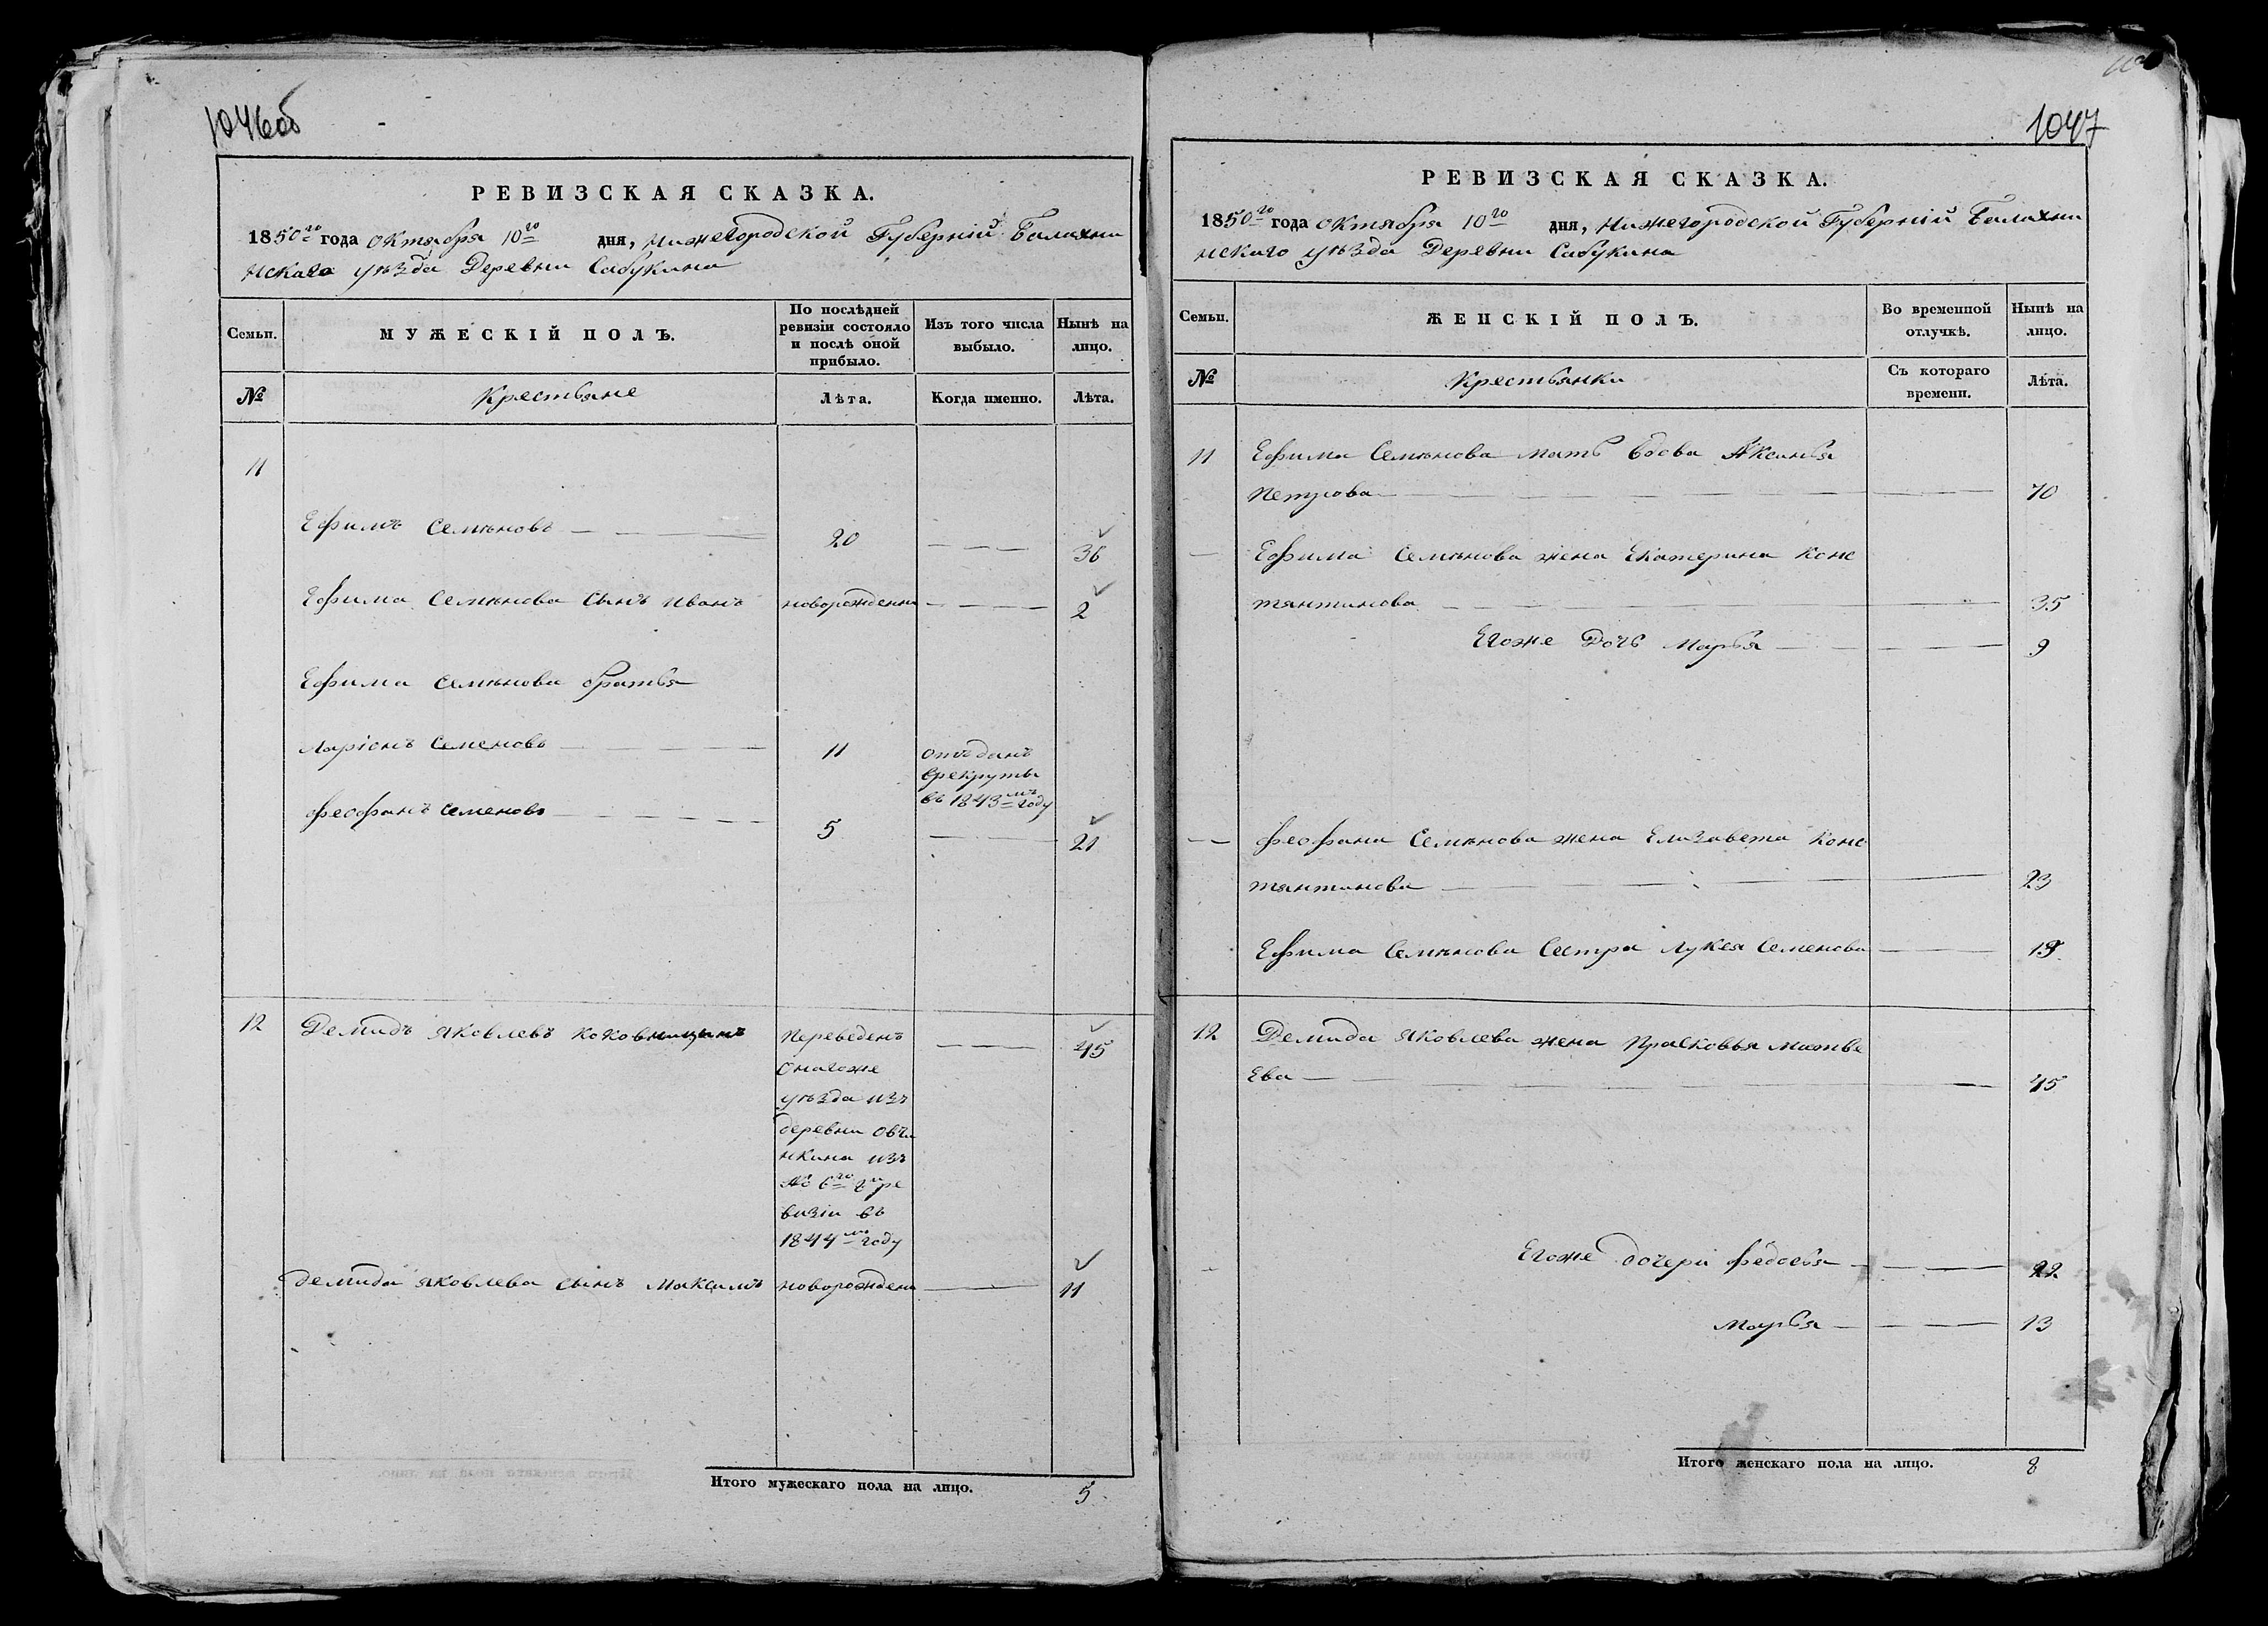 1046об
РЕВИЗСКАЯ СКАЗКА.
1850го года Октября 10го дня, Нижегородской Губерніи Балахни
нскаго уѣзда Деревни Сабукина
Семьи.
МУЖЕСКІЙ ПОЛЪ.
По послѣдней
ревизіи состояло
и послѣ оной
прибыло.
Изъ того числа
выбыло.
Нынѣ на
лицо.
№
Крестьяне
Лѣта.
Когда именно.
Лѣта.
11
Ефимъ Семѣновъ 20 36
Ефима Семѣнова Сынъ Иванъ новорожденны 2
Ефима Семѣнова братья
Ларіонъ Семеновъ 11 отъданъ
врекруты
въ 1843мъ году
Феофанъ Семеновъ 5 21
12 Демидъ Яковлевъ Коковницынъ Переведенъ 45
Онагоже
уѣзда изъ
деревни Овчи
нкина изъ
№ 6го 8й ре
визіи въ
1844мъ году
Демида Яковлева сынъ Максимъ новорождены 11
Итого мужескаго пола на лицо. 5
1047
РЕВИЗСКАЯ СКАЗКА.
1850го года Октября 10го дня, Нижегородской Губерніи Балахни
нскаго уѣзда Деревни Сабукина
Семьи.
ЖЕНСКІЙ ПОЛЪ.
Во временной
отлучкѣ.
Нынѣ на
лицо.
№
Крестьянки
Съ котораго
времени.
Лѣта.
11 Ефима Семѣнова мать вдова Аксинья
Петрова 70
Ефима Семѣнова жена Екатерина Конс
тянтинова 35
Егоже Дочь Марья 9
Феофана Семѣнова жена Елизавета Конс
тянтинова 23
Ефима Семѣнова Сестра Лукея Семенова
12 Демида Яковлева жена Прасковья Матве
Ева 45
Егоже дочери Федосья 22
Марья 13
Итого женскаго пола на лицо. 8